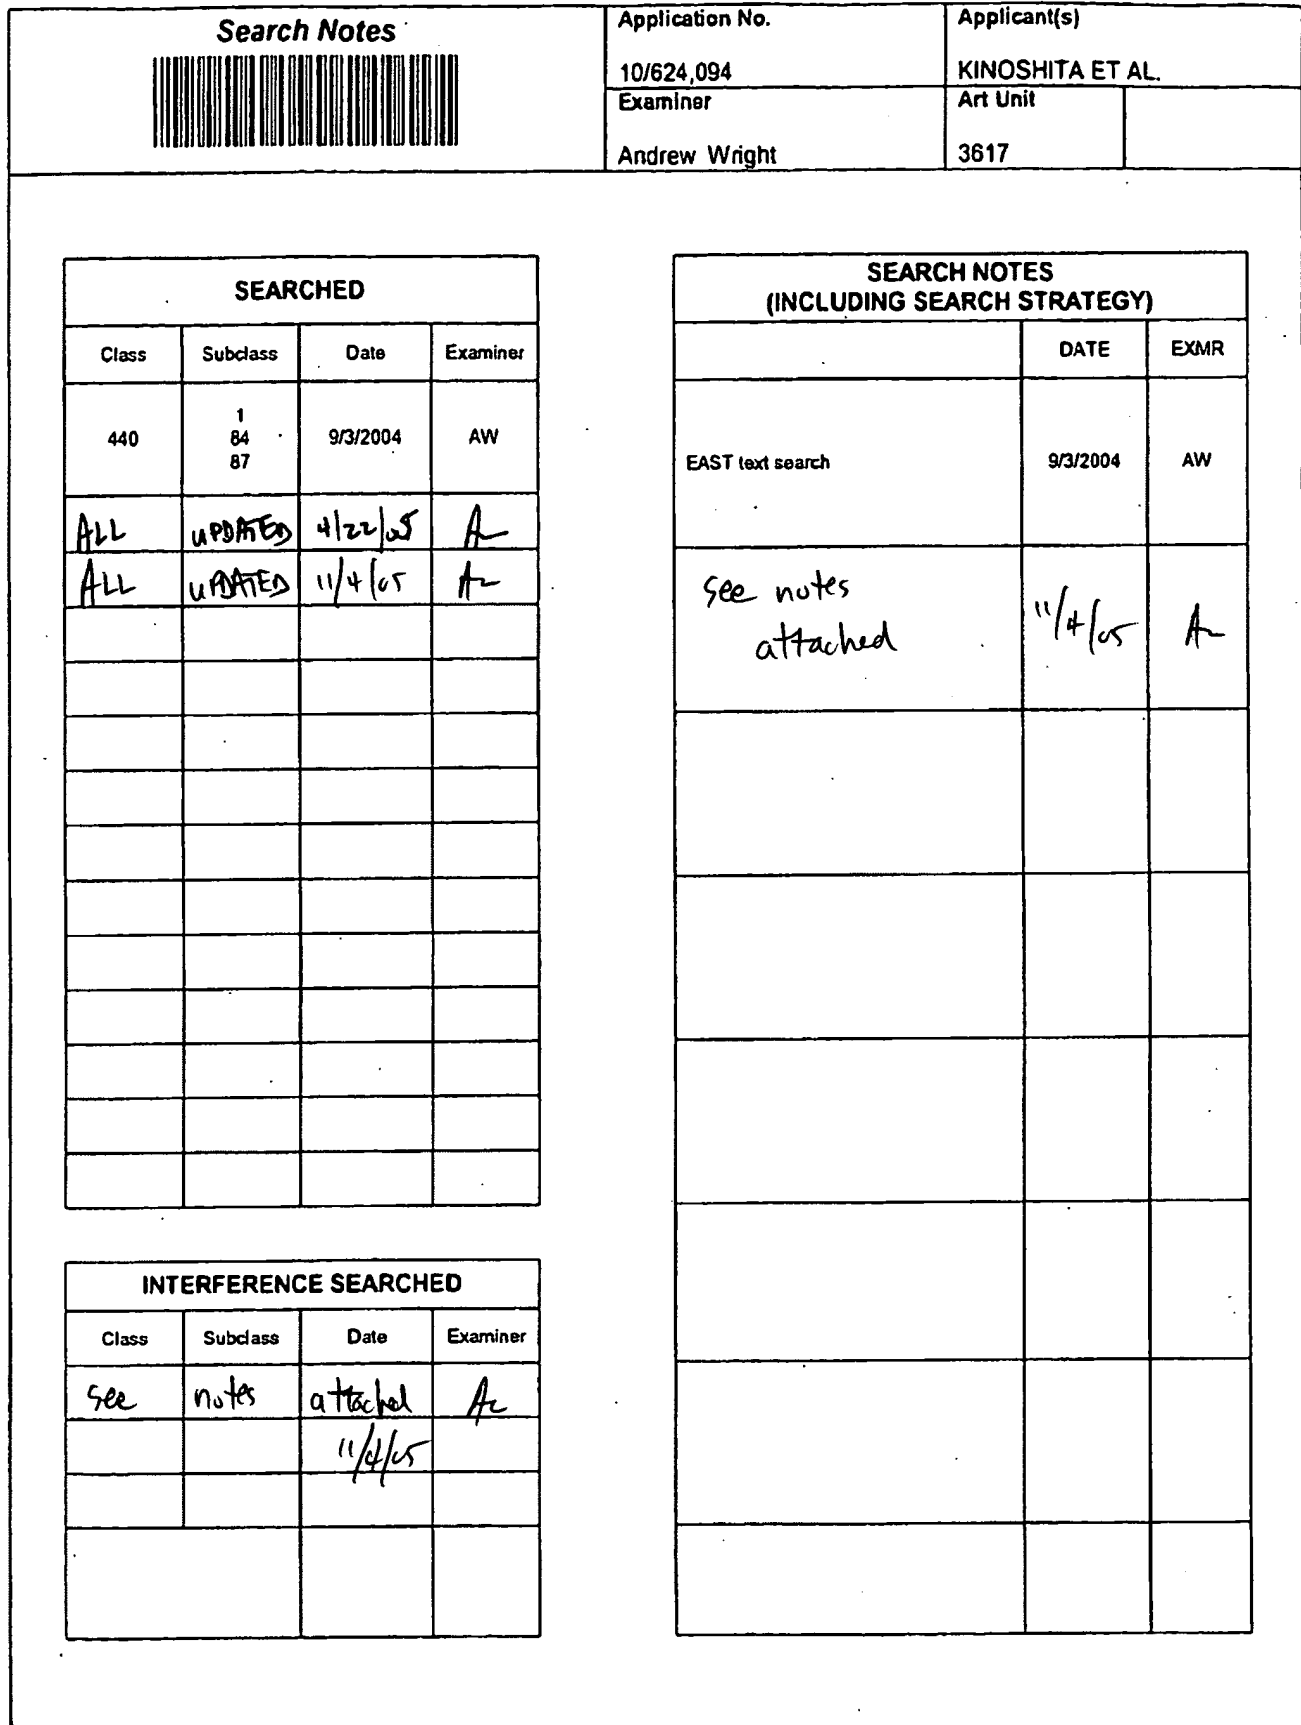 Search Notes
Application No.
10/624,094
Applicant(s)
KINOSHITA ET AL.
Examiner
Andrew Wright
Art Unit
3617
SEARCHED
Class Subclass Date Examiner
440 1 84 87 9/3/2004 AW
ALL UPDATED 4/22/05
ALL UPDATED 11/4/05
INTERFERENCE SEARCHED
Class Subclass Date Examiner
see notes attached
11/4/05
SEARCH NOTES
(INCLUDING SEARCH STRATEGY)
DATE EXMR
EAST text search 9/3/2004 AW
see notes
attached 11/4/05